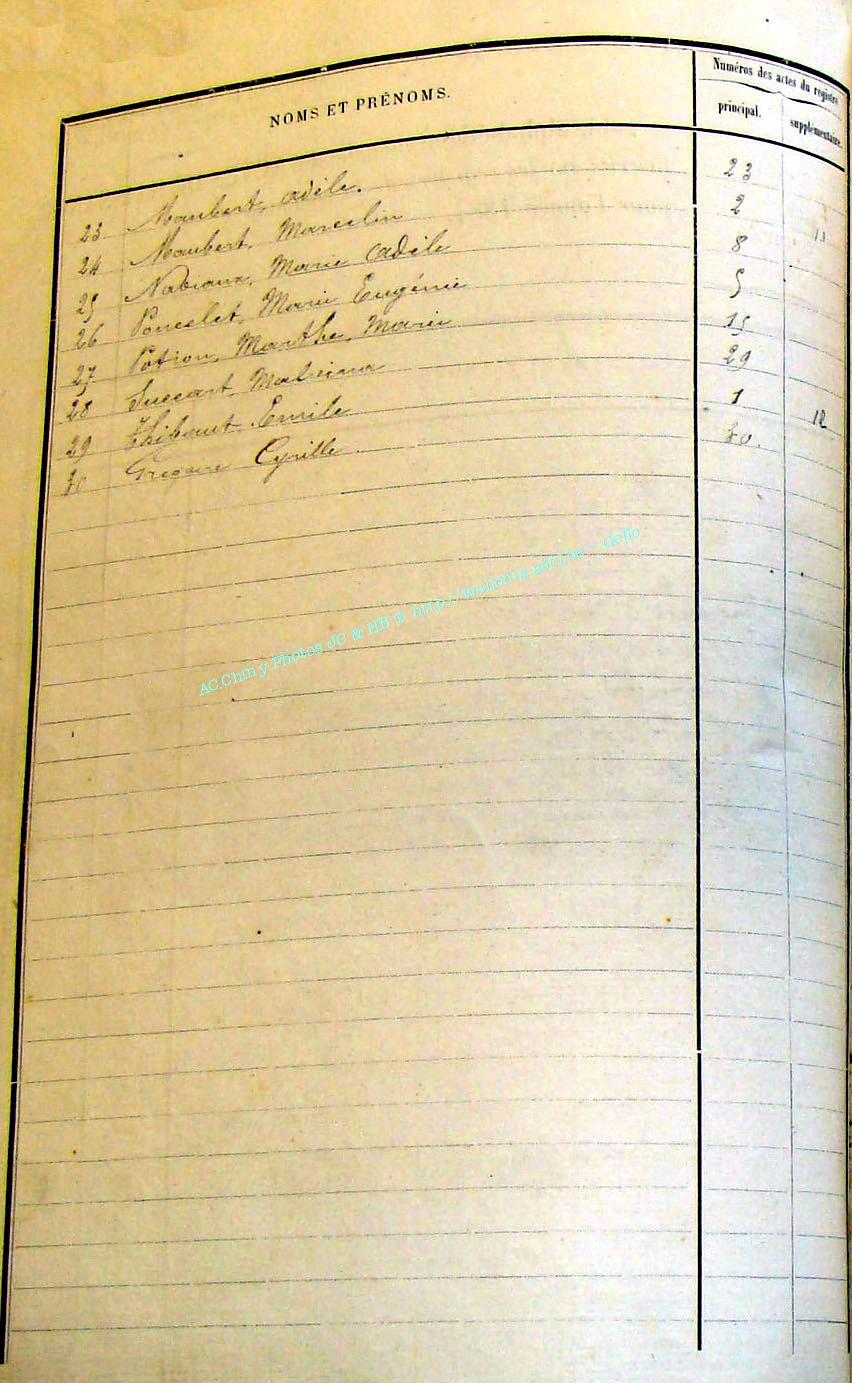 NOMS ET PRÉNOMS.
Numéros des actes du registre
principal.
supplémentaire.
23 Maubert, Adèle. 23
24 Maubert, Marcelin 2 11
25 Nabiaux, Marie Adèle 8
26 Poncelet, Marie Eugénie 5
27 Potion, Marthe, Marie 15
28 29
29 Thibaut, Emile 1 12
30 Gregoire Cyrille 30.
AC.Chiny Photos JC & HB ® http://wallonia-asbl.be - Geflo